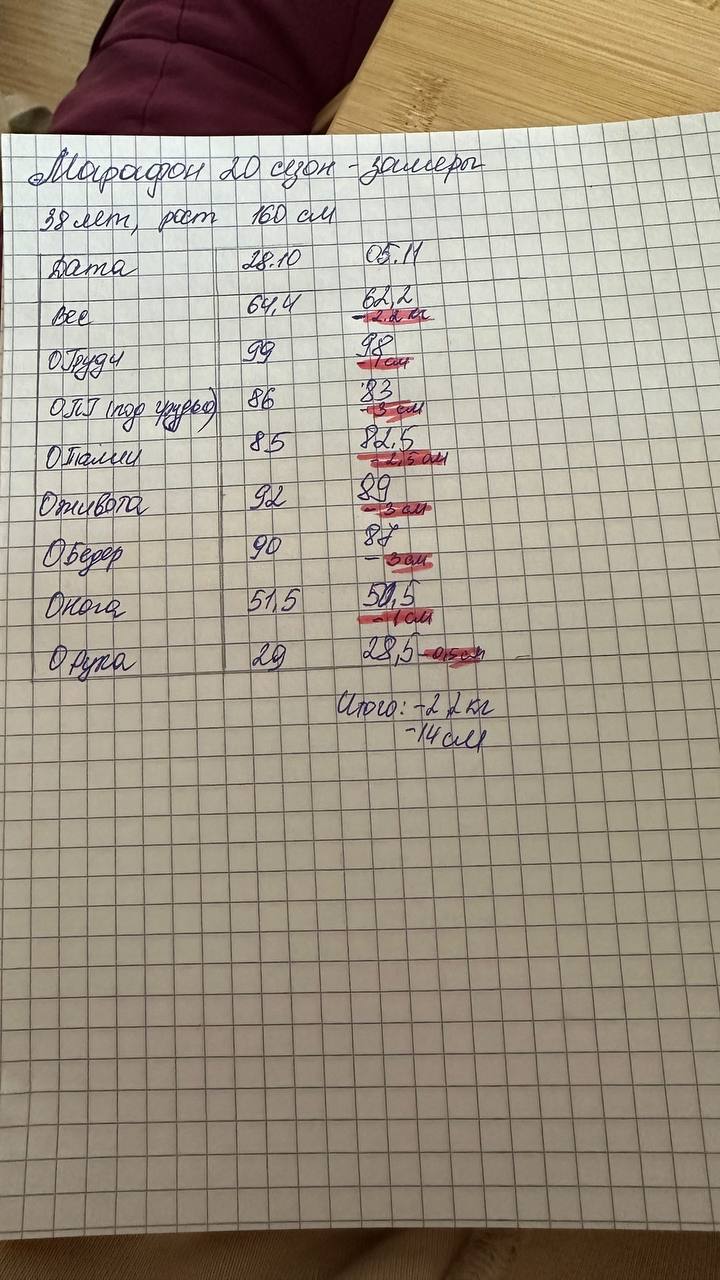 Марафон 20 сезон - замеры
38 лет, рост 160 см
Дата 28.10 05.11
Вес 64,4 62,2
- 2.2 кг
ОГруди 99 98
- 1 см
ОПГ (под грудью) 86 83
- 3 см
ОТалии 85 82,5
- 2,5 см
Оживота 92 89
- 3 см
ОБедер 90 87
- 3 см
Онога 51,5 50,5
- 1 см
О рука 29 28,5 - 0,5 см
Итого: -2,2 кг
-14 см